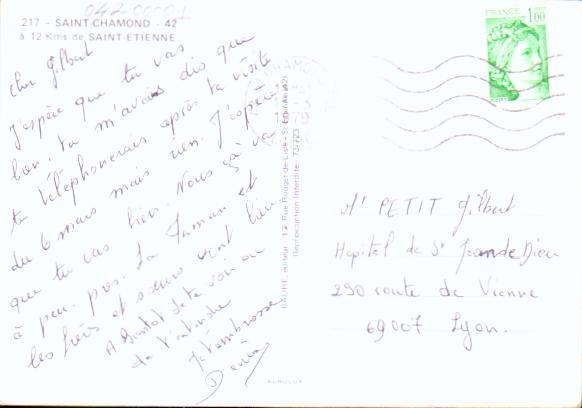 04200001
217 - SAINT-CHAMOND - 42
à 12 Kms de SAINT-ETIENNE
cher Gilbert
J'espère que tu vas
bien, tu m'avais dis que
tu téléphonerais après ta visite
du 6 mars mais rien. J'espère
que tu vas bien. Nous ça va
à peu près. Ta Maman et
tes frères et sœurs vont bien
A Bientot de te voir ou
de t'entendre
Je t'embrasse
BAURE, éditeur - 12 Rue Rouget-de-Lisle - St-Etienne (42)
Reproduction Interdite - 737223
FRANCE
1,00
POSTES
Mr PETIT Gilbert
Hopital de St Jean de Dieu
290 route de Vienne
69007 Lyon.
EUROLUX